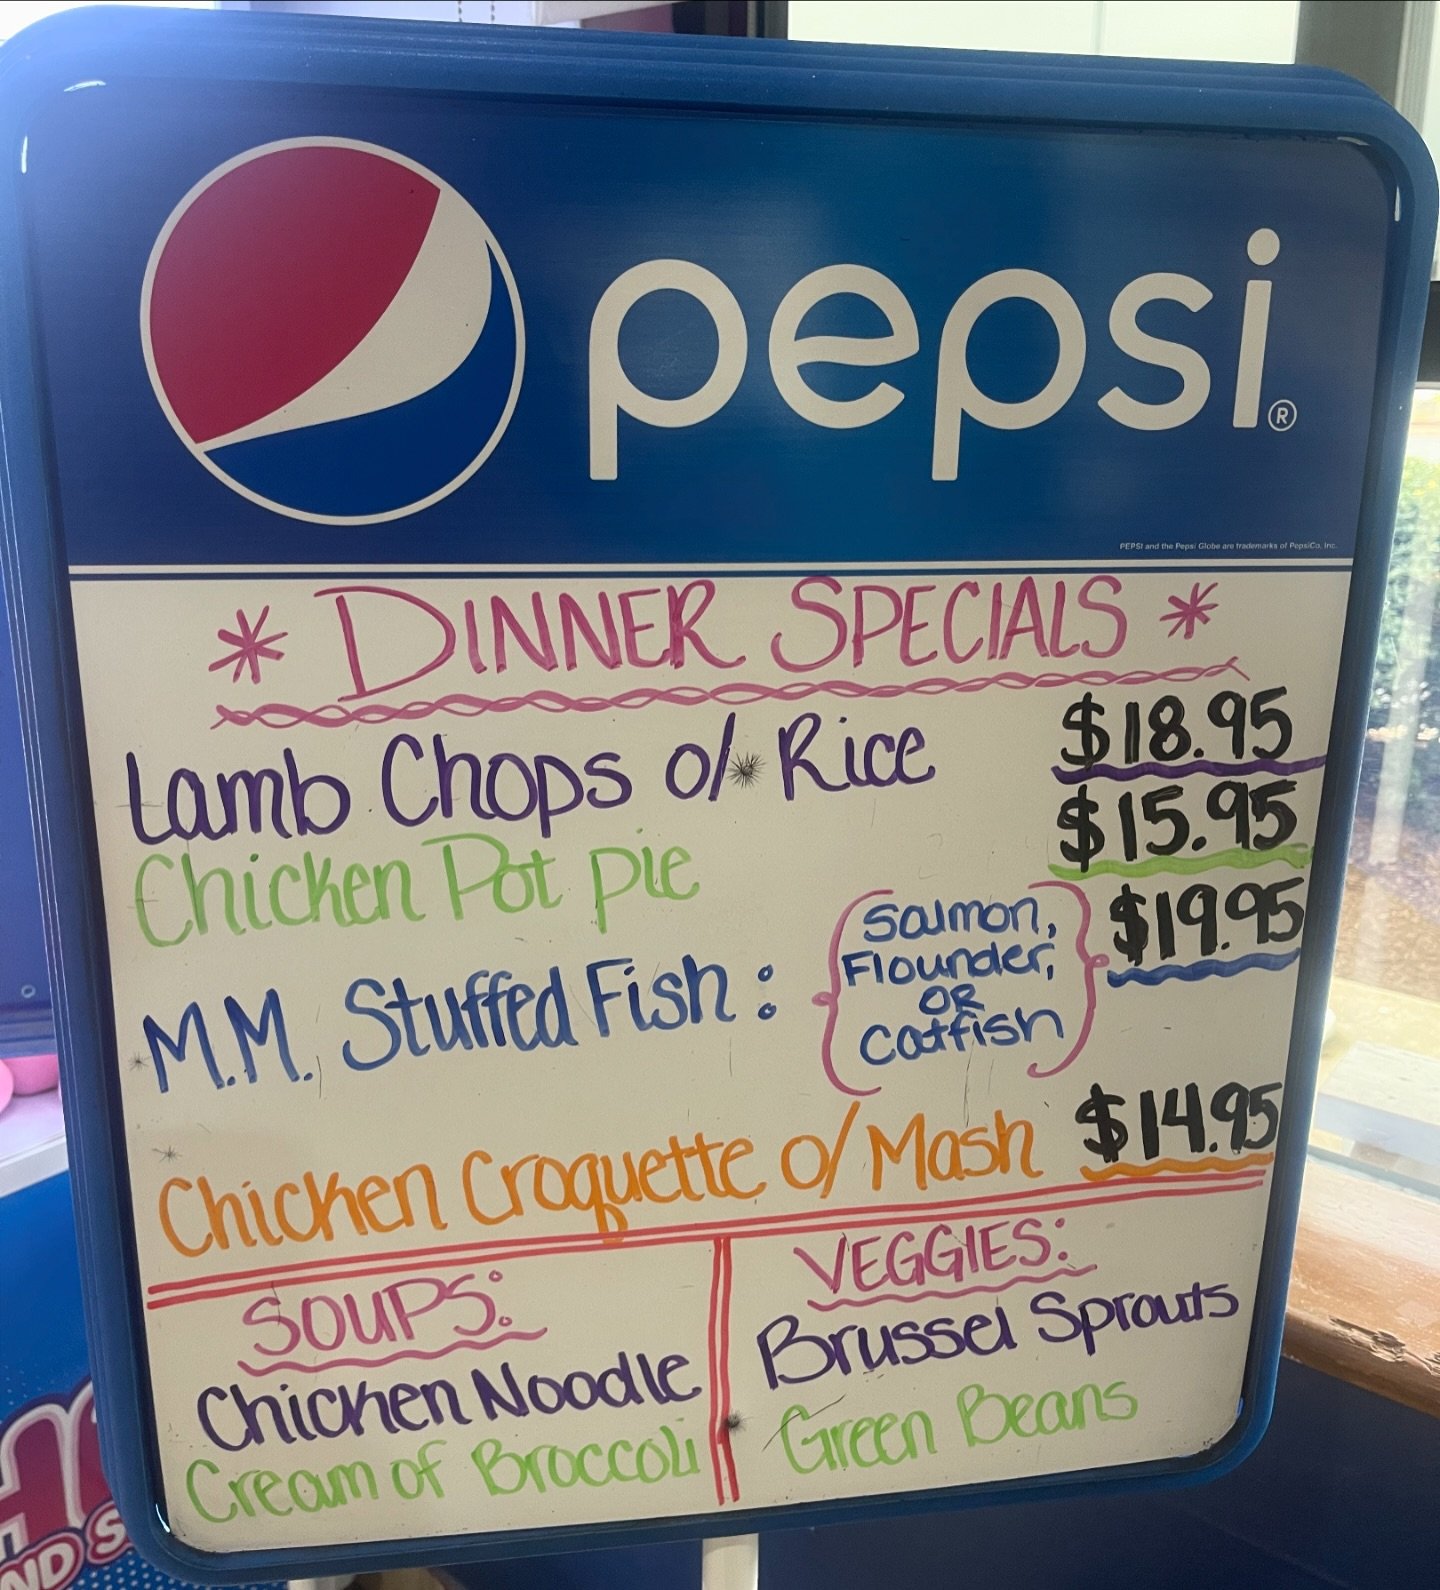 pepsi®
PEPSI and the Pepsi Globe are trademarks of PepsiCo, Inc.
* DINNER SPECIALS *
Lamb Chops o/ Rice $18.95
Chicken Pot Pie $15.95
M.M. Stuffed Fish : { Salmon, Flounder, OR Catfish } $19.95
Chicken Croquette o/ Mash $14.95
SOUPS:
Chicken Noodle
Cream of Broccoli
VEGGIES:
Brussel Sprouts
Green Beans